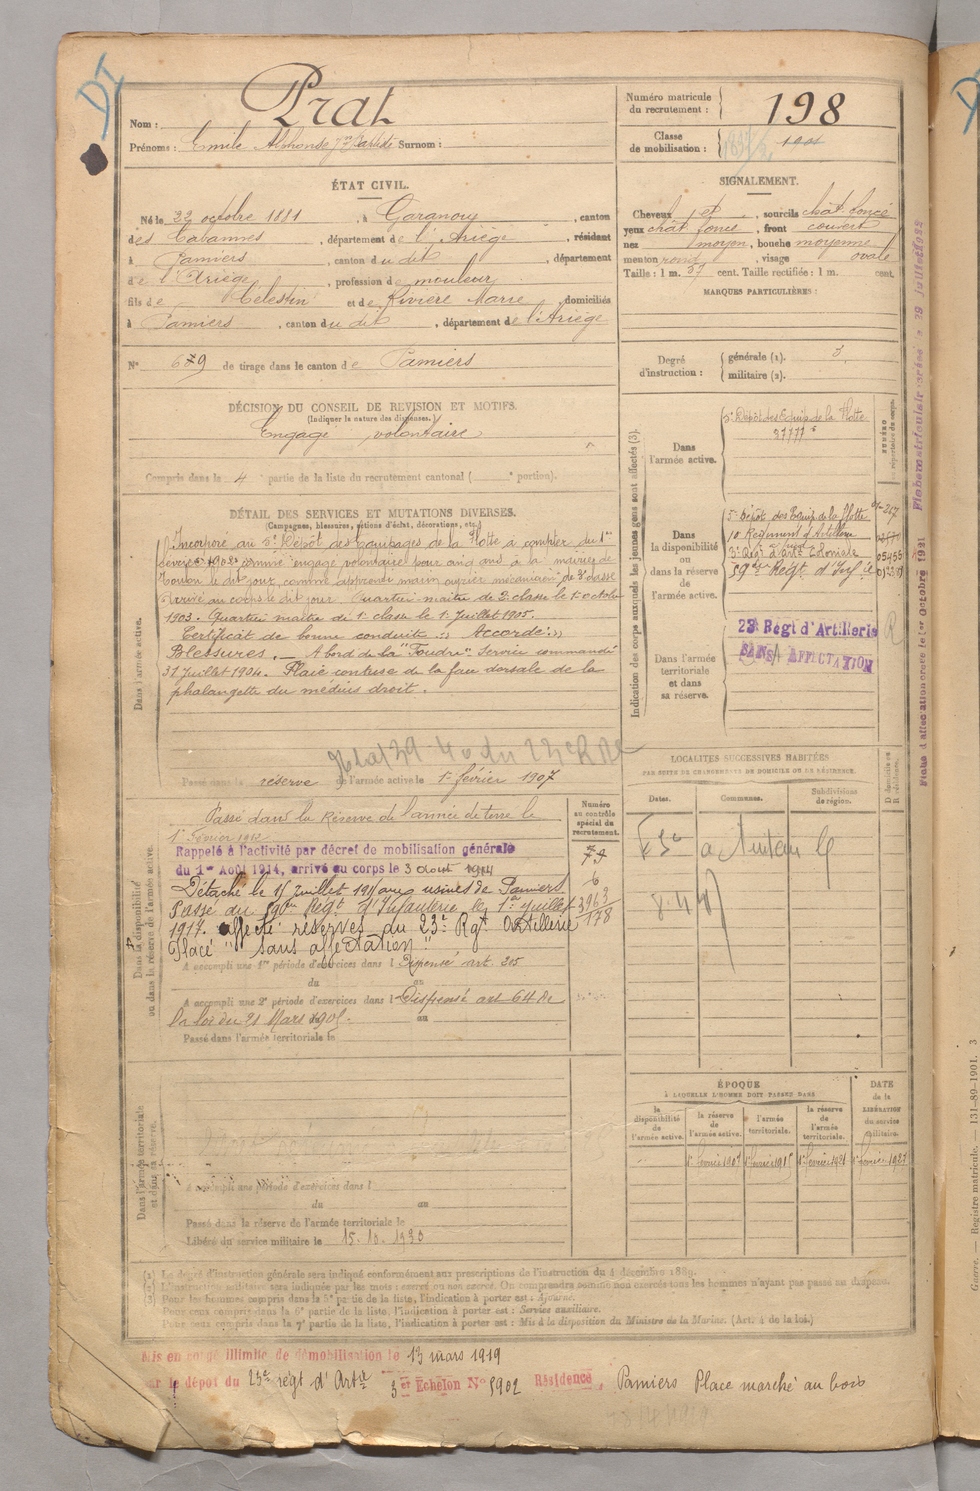 DI
Nom : Prat
Prénoms : Emile Alphonse Jn Baptiste Surnom :
Numéro matricule du recrutement : 198
Classe de mobilisation : 1901
ÉTAT CIVIL.
Né le 22 octobre 1881, à Garanou, canton
des Cabannes, département de l'Ariège, résidant
à Pamiers, canton du dit, département
de l'Ariège, profession de mouleur
fils de Célestin et de Rivière Marie, domiciliés
à Pamiers, canton du dit, département de l'Ariège
N° 679 de tirage dans le canton de Pamiers
SIGNALEMENT.
Cheveux et, sourcils chât. foncé
yeux chât. foncé, front couvert
nez moyen, bouche moyenne
menton rond, visage ovale
Taille : 1 m. 57 cent. Taille rectifiée : 1 m. cent.
MARQUES PARTICULIÈRES :
Degré d'instruction : générale (1). 3
militaire (2).
DÉCISION DU CONSEIL DE RÉVISION ET MOTIFS.
(Indiquer la nature des dispenses.)
Engagé volontaire
Compris dans la 4 partie de la liste du recrutement cantonal ( portion).
DÉTAIL DES SERVICES ET MUTATIONS DIVERSES.
(Campagnes, blessures, actions d'éclat, décorations, etc.)
Dans l'armée active.
Incorporé au 5e Dépôt des Equipages de la Flotte à compter du 1er
février 1902 comme engagé volontaire pour cinq ans à la mairie de
Toulon le dit jour, comme apprenti marin ouvrier mécanicien de 3e classe
Arrivé au corps le dit jour. Quartier-maître de 2e classe le 1er octobre
1903. Quartier maître de 1e classe le 1er Juillet 1905.
Certificat de bonne conduite "Accordé"
Blessures. — A bord de la "Foudre" Service commandé
31 Juillet 1904. Plaie contuse de la face dorsale de la
phalangette du médius droit.
Passé dans la réserve de l'armée active le 1er février 1907
Dans la disponibilité ou dans la réserve de l'armée active.
Numéro au contrôle spécial du recrutement.
Passé dans la Réserve de l'armée de terre le
1er Février 1912
Rappelé à l'activité par décret de mobilisation générale
du 1er Août 1914, arrivé au corps le 3 août 1914
Détaché le 15 Juillet 191 aux usines de Pamiers
Passé du 59me Régt d'Infanterie le 1er juillet
1917. affecté réserves du 23e Rgt Artillerie
Placé "sans affectation"
3963
178
A accompli une 1re période d'exercices dans l Dispensé art. 205
du au
A accompli une 2e période d'exercices dans l Dispensé art 64 de
la loi du 21 Mars 1905. au
Passé dans l'armée territoriale le
Dans l'armée territoriale et dans sa réserve.
A accompli une période d'exercices dans l
du au
Passé dans la réserve de l'armée territoriale le
Libéré du service militaire le 15.10.1930
Indication des corps auxquels les jeunes gens sont affectés (3).
Dans l'armée active.
5e Dépôt des Equip. de la Flotte
37777 5
Dans la disponibilité ou dans la réserve de l'armée active.
5e Dépôt des Equip. de la Flotte
10 Régiment d'Artillerie
3e Régt d'artie Coloniale
59me Régt d'Infie
Dans l'armée territoriale et dans sa réserve.
23e Régt d'Artillerie
SANS AFFECTATION
R
LOCALITÉS SUCCESSIVES HABITÉES
PAR SUITE DE CHANGEMENTS DE DOMICILE OU DE RÉSIDENCE.
Dates. Communes. Subdivisions de région. D domicile ou R résidence.
ÉPOQUE
À LAQUELLE L'HOMME DOIT PASSER DANS
la disponibilité de l'armée active. la réserve de l'armée active. l'armée territoriale. la réserve de l'armée territoriale. DATE de la LIBÉRATION du service militaire.
1er février 1907 1er février 1915 1er février 1921 1er février 1927
(1) Le degré d'instruction générale sera indiqué conformément aux prescriptions de l'instruction du 4 décembre 1889.
(2) L'instruction militaire sera indiquée par les mots : exercé ou non exercé. On comprendra comme non exercés tous les hommes n'ayant pas passé au drapeau.
(3) Pour les hommes compris dans la 5e partie de la liste, l'indication à porter est : Ajourné.
Pour ceux compris dans la 6e partie de la liste, l'indication à porter est : Service auxiliaire.
Pour ceux compris dans la 7e partie de la liste, l'indication à porter est : Mis à la disposition du Ministre de la Marine. (Art. 4 de la loi.)
Mis en congé illimité de démobilisation le 13 mars 1919
par le dépôt du 23e régt d'Artie 3 er Echelon N° 5902 Résidence, Pamiers Place marché au bois
Fiche d'affectation créée le 1er Octobre 1921
Guerre. — Registre matricule. — 131-89-1901. 3